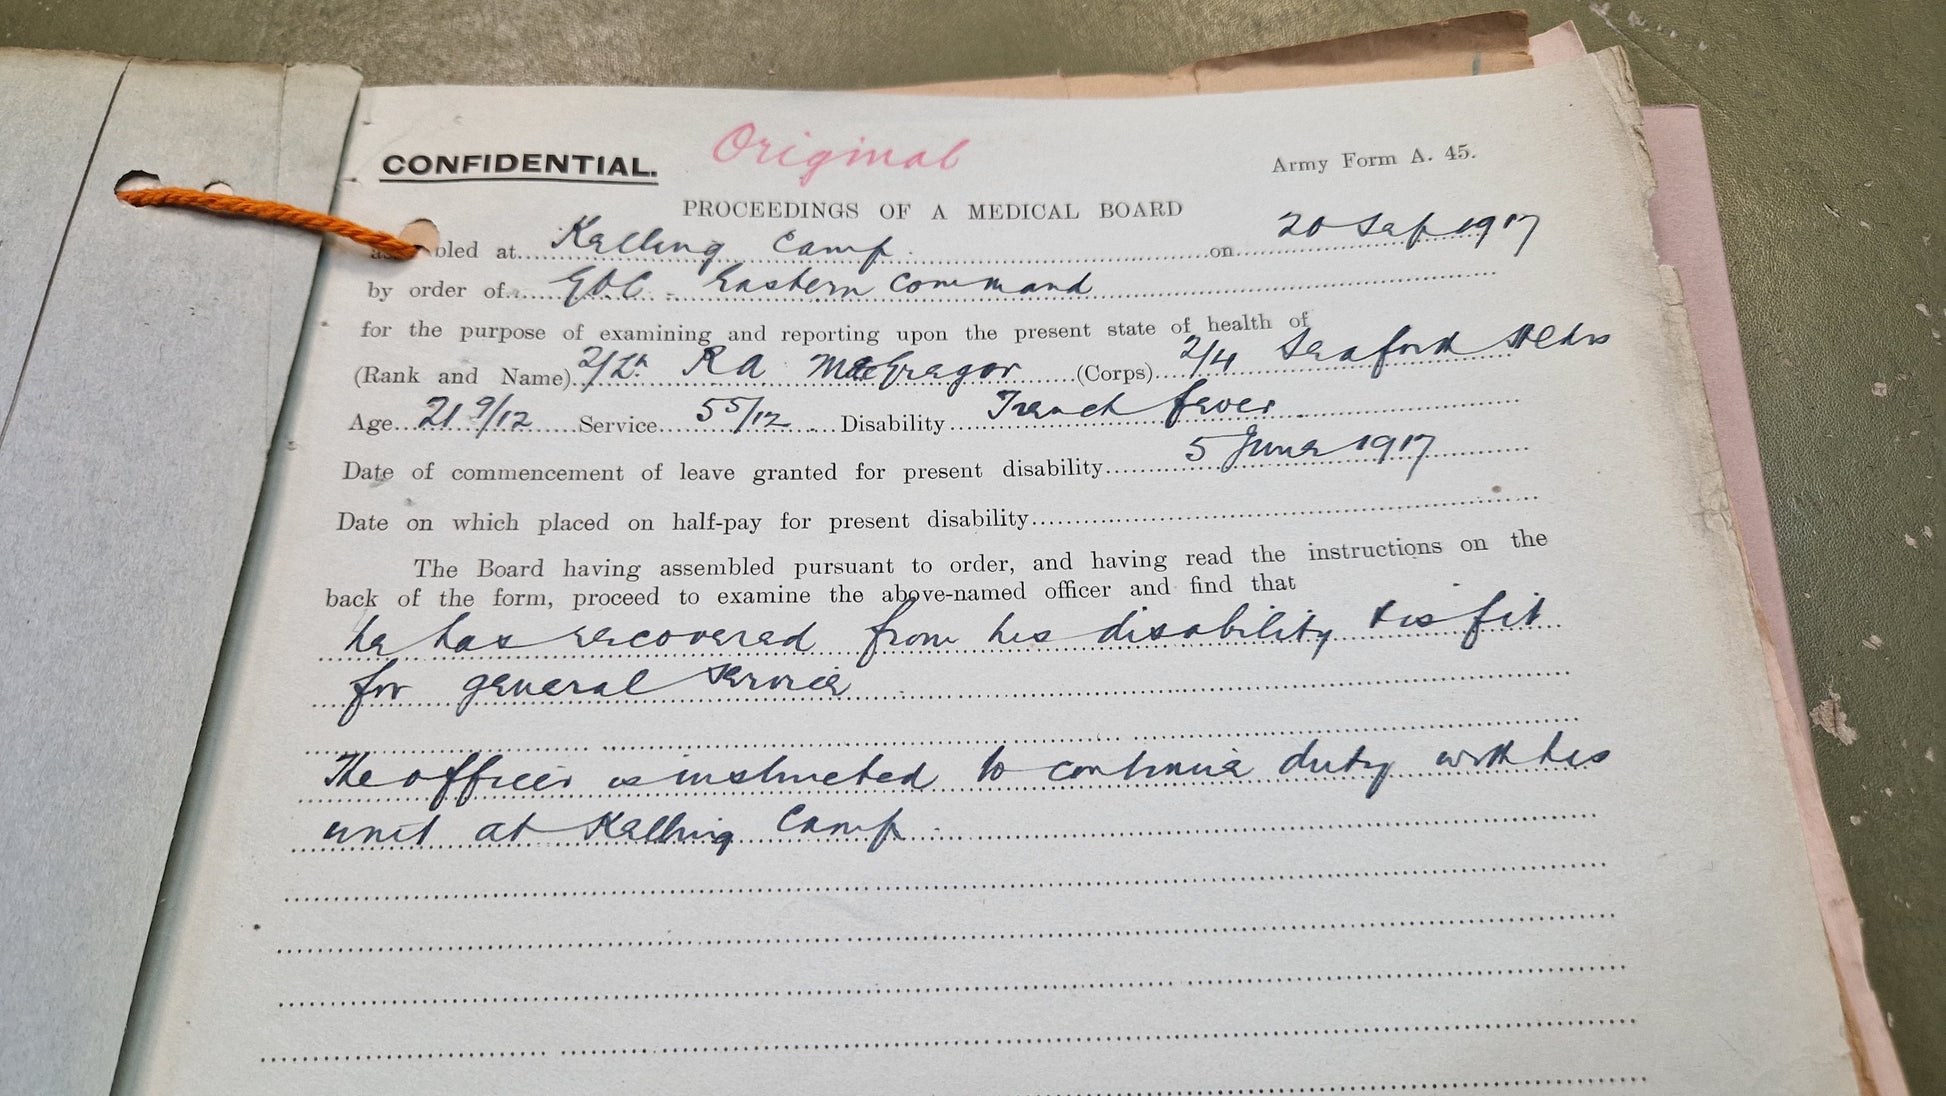 Original
CONFIDENTIAL.
Army Form A. 45.
PROCEEDINGS OF A MEDICAL BOARD
bled at Kelling Camp on 20 Sep 1917
by order of GOC. Eastern Command
for the purpose of examining and reporting upon the present state of health of
(Rank and Name) 2/Lt R A McGregor (Corps) 2/4 Seaforth Hldrs
Age 21 9/12 Service 5 5/12 Disability Trench fever.
Date of commencement of leave granted for present disability 5 June 1917
Date on which placed on half-pay for present disability
The Board having assembled pursuant to order, and having read the instructions on the
back of the form, proceed to examine the above-named officer and find that
he has recovered from his disability & is fit
for general service
The officer is instructed to continue duty with his
unit at Kelling Camp.